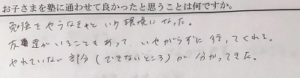 お子さまを塾に通わせて良かったと思うことは何ですか。
勉強をやらなきゃという環境になった。
友達がいることもあって、いやがらずに行ってくれる。
やれていない部分(できないところ)が分かってきた。